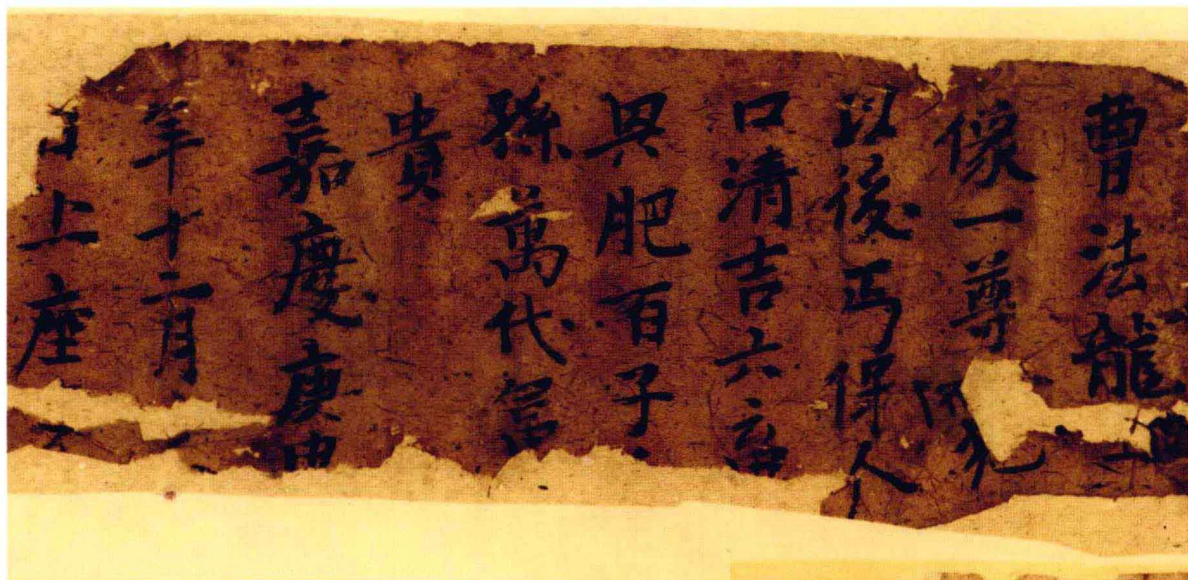 曹法龍
像一尊
以後丐保人
口清吉六畜
肥百子
孫萬代富
貴
嘉慶庚申
年十二月
日上座